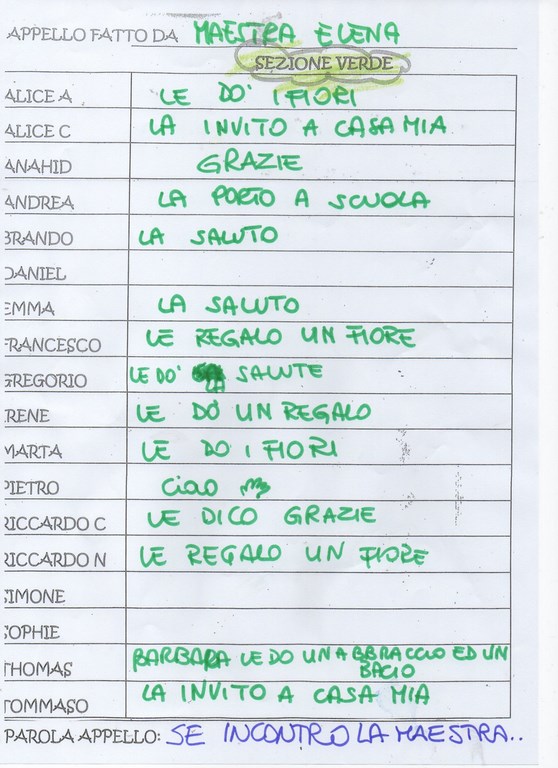 APPELLO FATTO DA MAESTRA ELENA
SEZIONE VERDE
ALICE A LE DO' I FIORI
ALICE C LA INVITO A CASA MIA
ANAHID GRAZIE
ANDREA LA PORTO A SCUOLA
BRANDO LA SALUTO
DANIEL
EMMA LA SALUTO
FRANCESCO LE REGALO UN FIORE
GREGORIO LE DO' LA SALUTE
RENE LE DO UN REGALO
MARTA LE DO I FIORI
PIETRO Ciao
RICCARDO C LE DICO GRAZIE
RICCARDO N LE REGALO UN FIORE
SIMONE
SOPHIE
THOMAS BARBARA LE DO UN ABBRACCIO ED UN
BACIO
TOMMASO LA INVITO A CASA MIA
PAROLA APPELLO: SE INCONTRO LA MAESTRA..